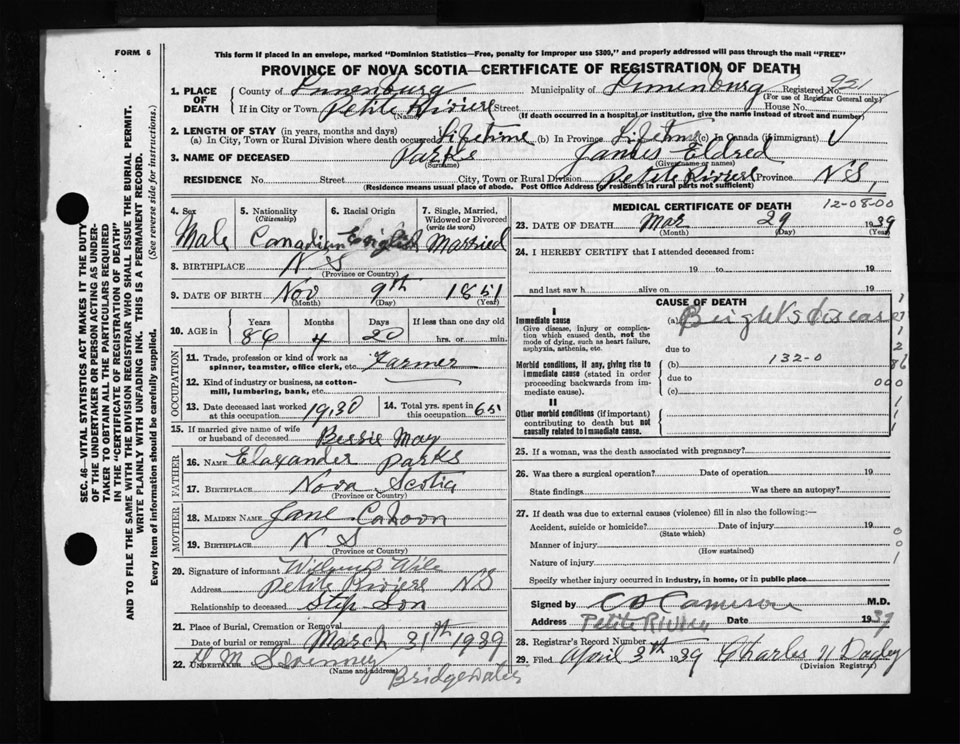 FORM 6
This form if placed in an envelope, marked "Dominion Statistics—Free, penalty for improper use $300," and properly addressed will pass through the mail "FREE"
PROVINCE OF NOVA SCOTIA—CERTIFICATE OF REGISTRATION OF DEATH
1. PLACE OF DEATH County of Lunenburg Municipality of Lunenburg Registered No. 921
(For use of Registrar General only)
If in City or Town Petite Riviere Street House No.
(Name) (If death occurred in a hospital or institution, give the name instead of street and number)
2. LENGTH OF STAY (in years, months and days)
(a) In City, Town or Rural Division where death occurred Lifetime (b) In Province Lifetime (c) In Canada (if immigrant)
3. NAME OF DECEASED Parks James Eldred
(Surname) (Given name or names)
RESIDENCE No. Street City, Town or Rural Division Petite Riviere Province N.S.
(Residence means usual place of abode. Post Office Address for residents in rural parts not sufficient)
SEC. 46—VITAL STATISTICS ACT MAKES IT THE DUTY
OF THE UNDERTAKER OR PERSON ACTING AS UNDER-
TAKER TO OBTAIN ALL THE PARTICULARS REQUIRED
IN THE "CERTIFICATE OF REGISTRATION OF DEATH"
AND TO FILE THE SAME WITH THE DIVISION REGISTRAR WHO SHALL ISSUE THE BURIAL PERMIT.
WRITE PLAINLY WITH UNFADING INK. THIS IS A PERMANENT RECORD.
Every item of information should be carefully supplied. (See reverse side for instructions.)
4. Sex 5. Nationality (Citizenship) 6. Racial Origin 7. Single, Married, Widowed or Divorced (write the word)
Male Canadian English Married
8. BIRTHPLACE N S
(Province or Country)
9. DATE OF BIRTH Nov 9th 1851
(Month) (Day) (Year)
10. AGE in Years Months Days If less than one day old
86 4 20 hrs. or min.
OCCUPATION
11. Trade, profession or kind of work as spinner, teamster, office clerk, etc. Farmer
12. Kind of industry or business, as cotton-mill, lumbering, bank, etc.
13. Date deceased last worked at this occupation 1930 14. Total yrs. spent in this occupation 65
15. If married give name of wife or husband of deceased Bessie May
FATHER
16. NAME Elaxander Parks
17. BIRTHPLACE Nova Scotia
(Province or Country)
MOTHER
18. MAIDEN NAME Jane Cahoon
19. BIRTHPLACE N S
(Province or Country)
20. Signature of informant Wile
Address Petite Riviere N S
Relationship to deceased Step Son
21. Place of Burial, Cremation or Removal
Date of burial or removal March 31th 1939
22. UNDERTAKER
(Name and address)
Bridgewater
MEDICAL CERTIFICATE OF DEATH 12-08-00
23. DATE OF DEATH Mar 29 1939
(Month) (Day) (Year)
24. I HEREBY CERTIFY that I attended deceased from:
19 to 19
and last saw h alive on 19
CAUSE OF DEATH
I
Immediate cause (a) Bright's disease
Give disease, injury or complication which caused death, not the mode of dying, such as heart failure, asphyxia, asthenia, etc.
due to
Morbid conditions, if any, giving rise to immediate cause (stated in order proceeding backwards from immediate cause). (b) 132-0
due to
(c)
II
Other morbid conditions (if important) contributing to death but not causally related to immediate cause.
25. If a woman, was the death associated with pregnancy?
26. Was there a surgical operation? Date of operation 19
State findings Was there an autopsy?
27. If death was due to external causes (violence) fill in also the following:—
Accident, suicide or homicide? Date of injury 19
(State which)
Manner of injury
(How sustained)
Nature of injury
Specify whether injury occurred in industry, in home, or in public place
Signed by C D Cameron M.D.
Address Petite Riviere Date 1939
28. Registrar's Record Number
29. Filed April 3th 1939 Charles U Dagley
(Division Registrar)